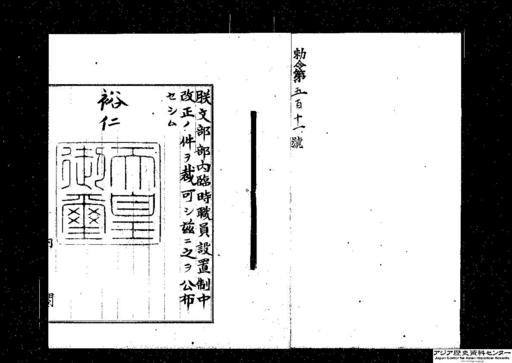 勅令第五百十一號
朕文部部内臨時職員設置制中
改正ノ件ヲ裁可シ茲ニ之ヲ公布
セシム
裕仁
天皇
御璽
内
閣
アジア歴史資料センター
Japan Center for Asian Historical Records